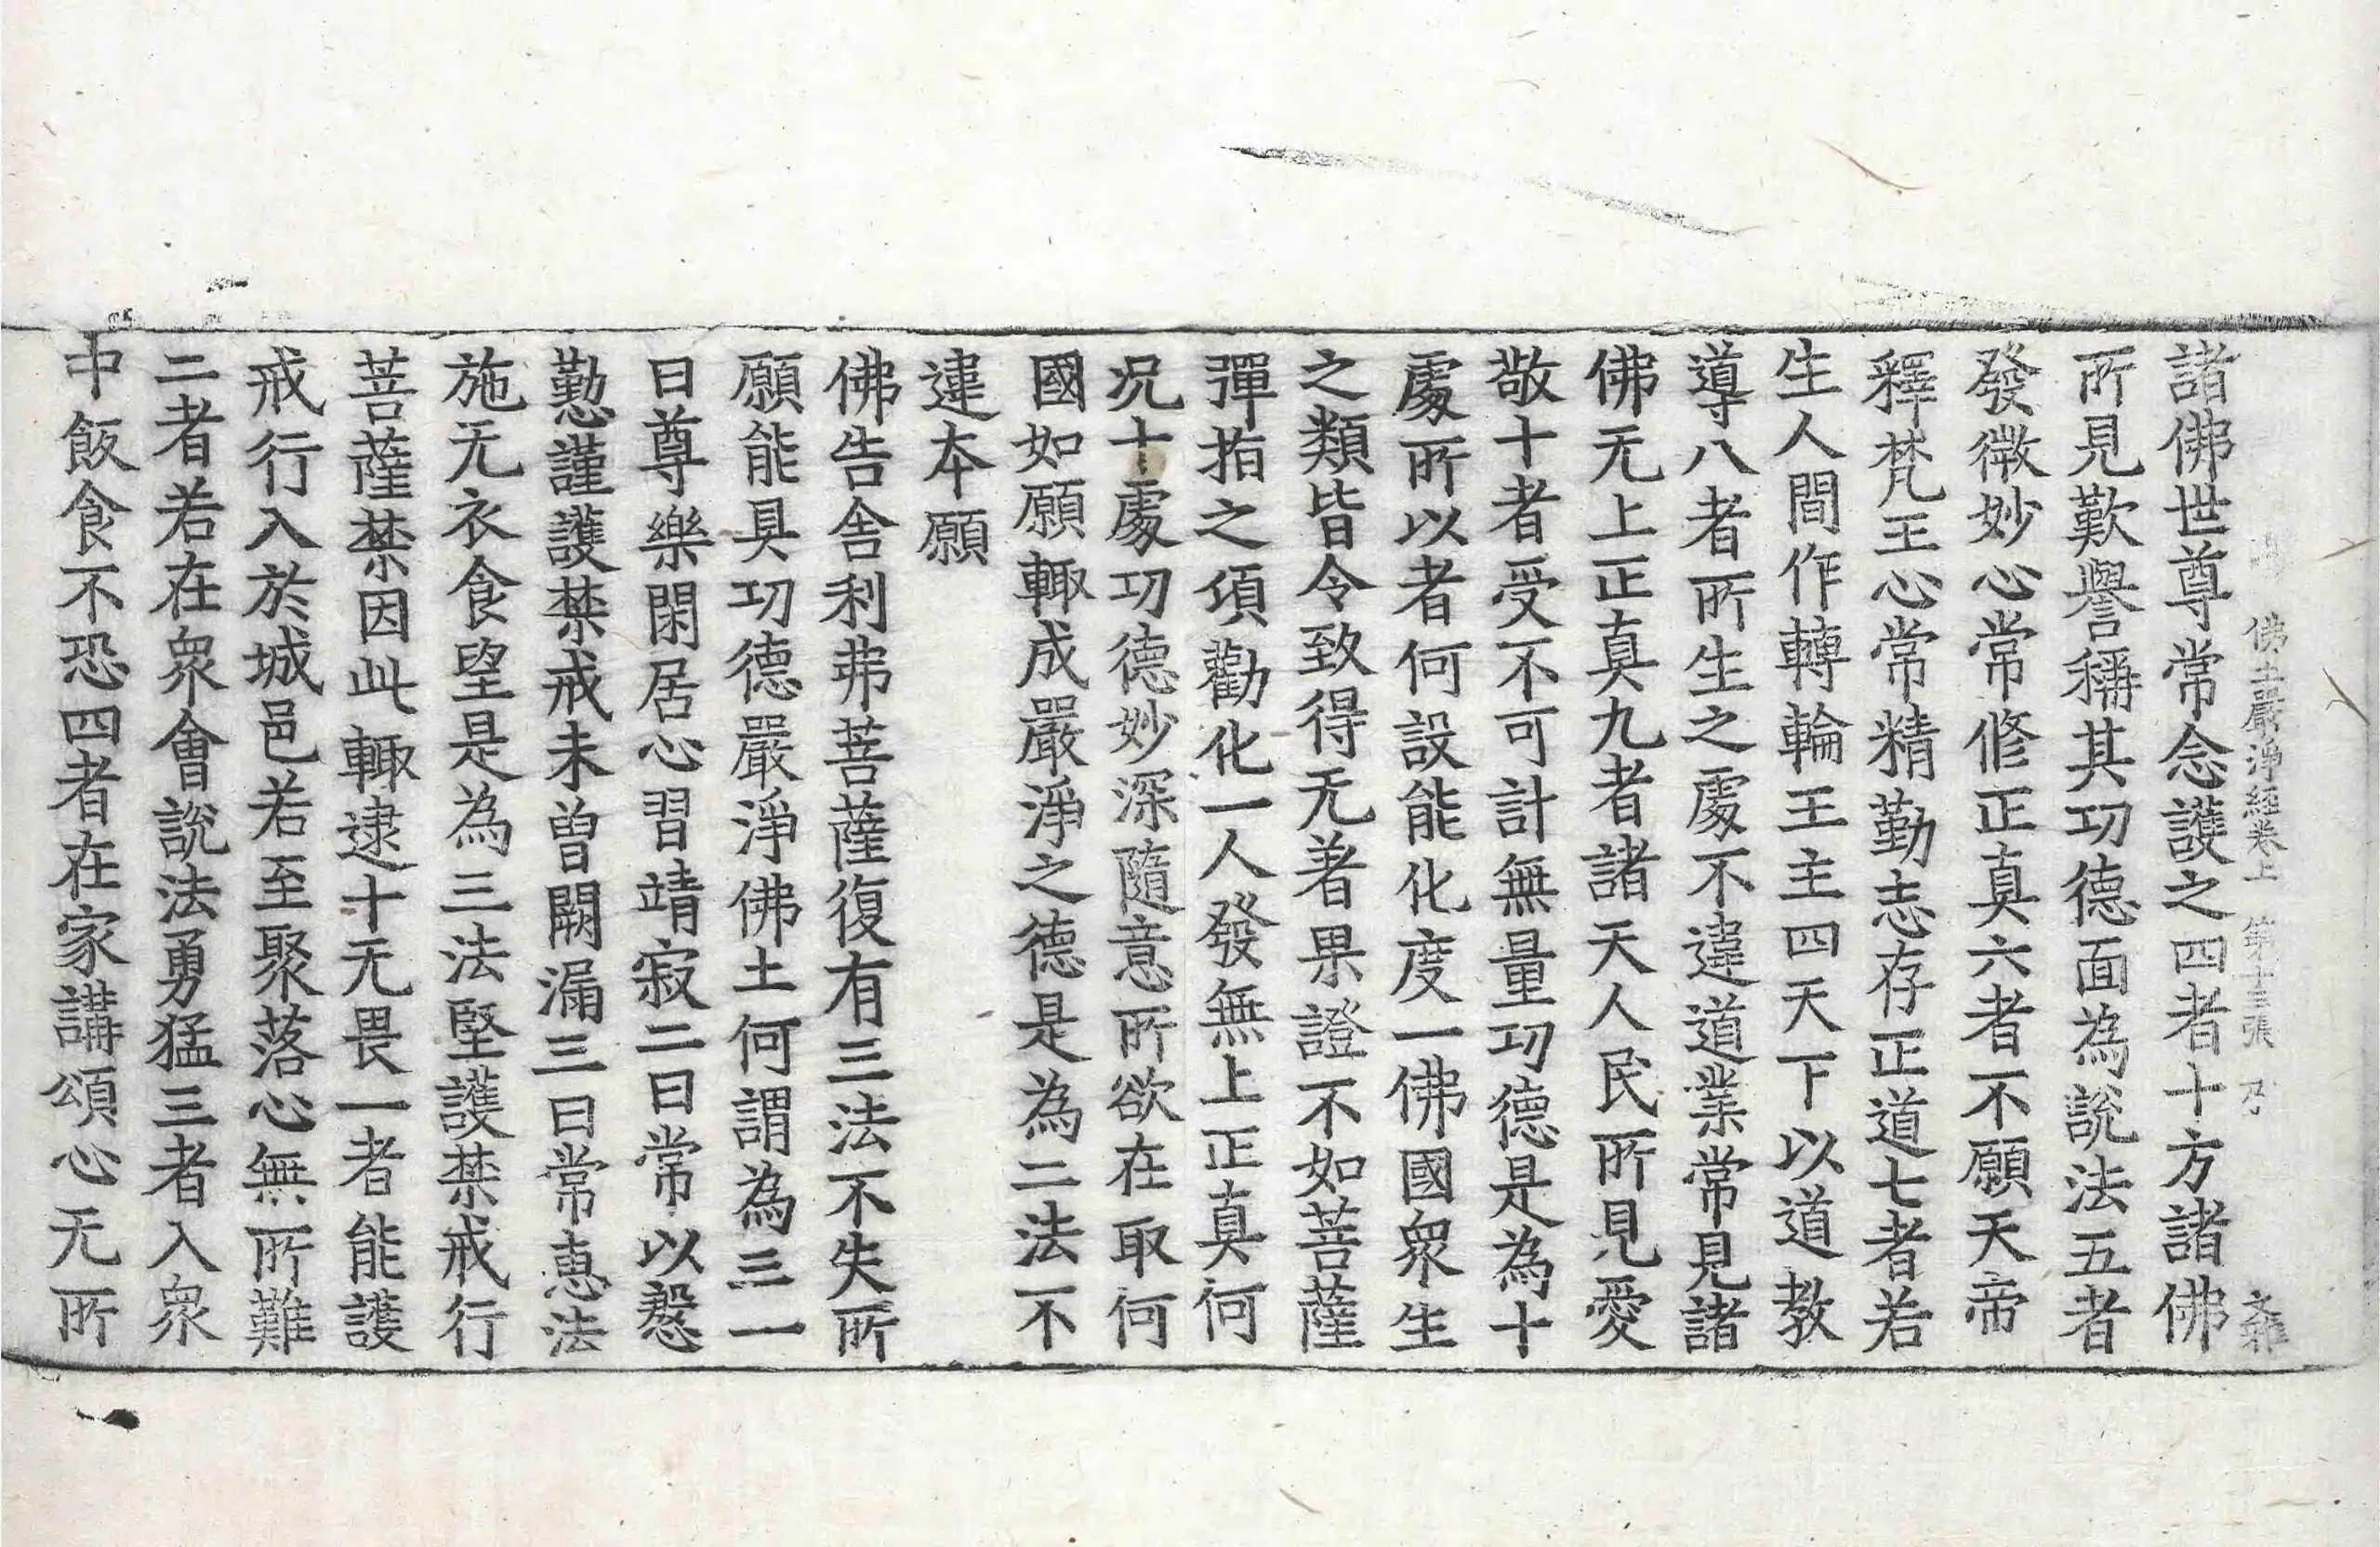 佛土嚴淨經卷上 第十三張 乃
諸佛世尊常念護之四者十方諸佛
所見歎譽稱其功德面為說法五者
發微妙心常修正真六者不願天帝
釋梵王心常精勤志存正道七者若
生人間作轉輪王主四天下以道教
導八者所生之處不違道業常見諸
佛无上正真九者諸天人民所見愛
敬十者受不可計無量功德是為十
處所以者何設能化度一佛國眾生
之類皆令致得无著果證不如菩薩
彈指之頃勸化一人發無上正真何
况十處功德妙深隨意所欲在取何
國如願輙成嚴淨之德是為二法不
違本願
佛告舍利弗菩薩復有三法不失所
願能具功德嚴淨佛土何謂為三一
曰尊樂閑居心習靖寂二曰常以慇
懃謹護禁戒未曾闕漏三曰常惠法
施无衣食望是為三法堅護禁戒行
菩薩禁因此輙逮十无畏一者能護
戒行入於城邑若至聚落心無所難
二者若在眾會說法勇猛三者入眾
中飯食不恐四者在家講頌心无所